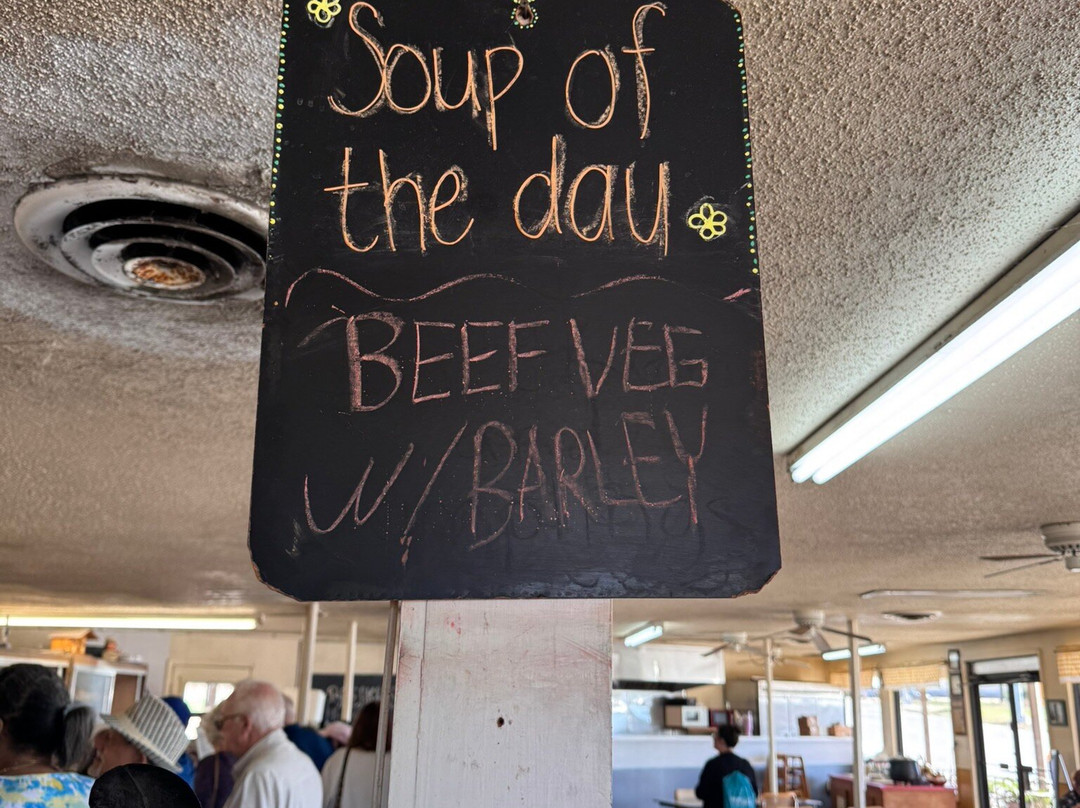 Soup of
the day
BEEF VEG
W/ BARLEY